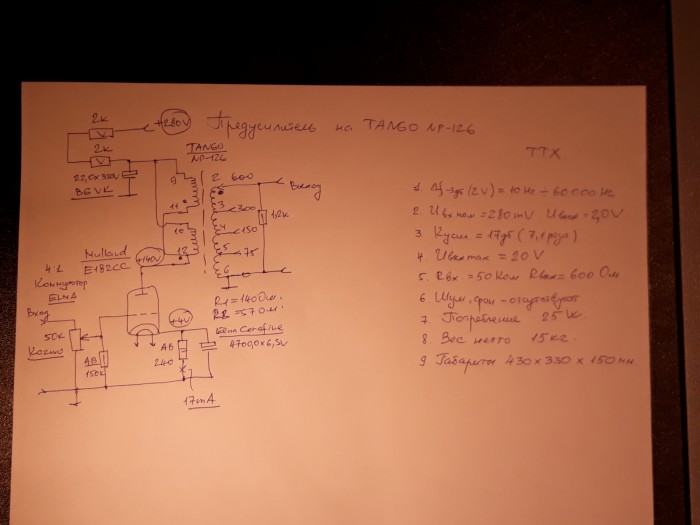 2k
+280V
Предусилитель на TANGO NP-126
2k
TANGO
NP-126
ТТХ
22,0x350V
BG VK
9
11
10
12
2 600
Выход
3 300
4 150
5 75
6
1,2k
Mullard
E182CC
+140V
4:1
Коммутатор
ELMA
Вход
50k
Kozmo
AB
150k
+4V
AB
240
17mA
R1 = 140 Ом.
R2 = 57 Ом.
Elna Cerafine
4700,0x6,3v
1. Δf-3дб (2V) = 10 Hz ÷ 60000 Hz
2. Uвх ном = 280mV Uвых = 2,0V
3. Кусил = 17дб (7,1 раза)
4. Uвыхmax = 20V
5. Rвх. = 50 Ком Rвых = 600 Ом
6 Шум, фон - отсутствуют
7. Потребление 25 W.
8 Вес нетто 15 кг.
9 Габариты 430 x 330 x 150 мм.